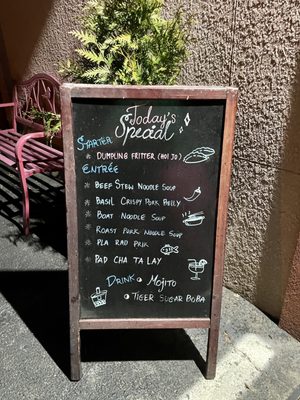 Today's
Special
Starter
* Dumpling Fritter (Hoi Jo)
Entrée
* Beef Stew Noodle Soup
* Basil Crispy Pork Belly
* Boat Noodle Soup
* Roast Pork Noodle Soup
* Pla Rad Prik
* Pad Cha Ta Lay
Drink • Mojito
• Tiger Sugar Boba